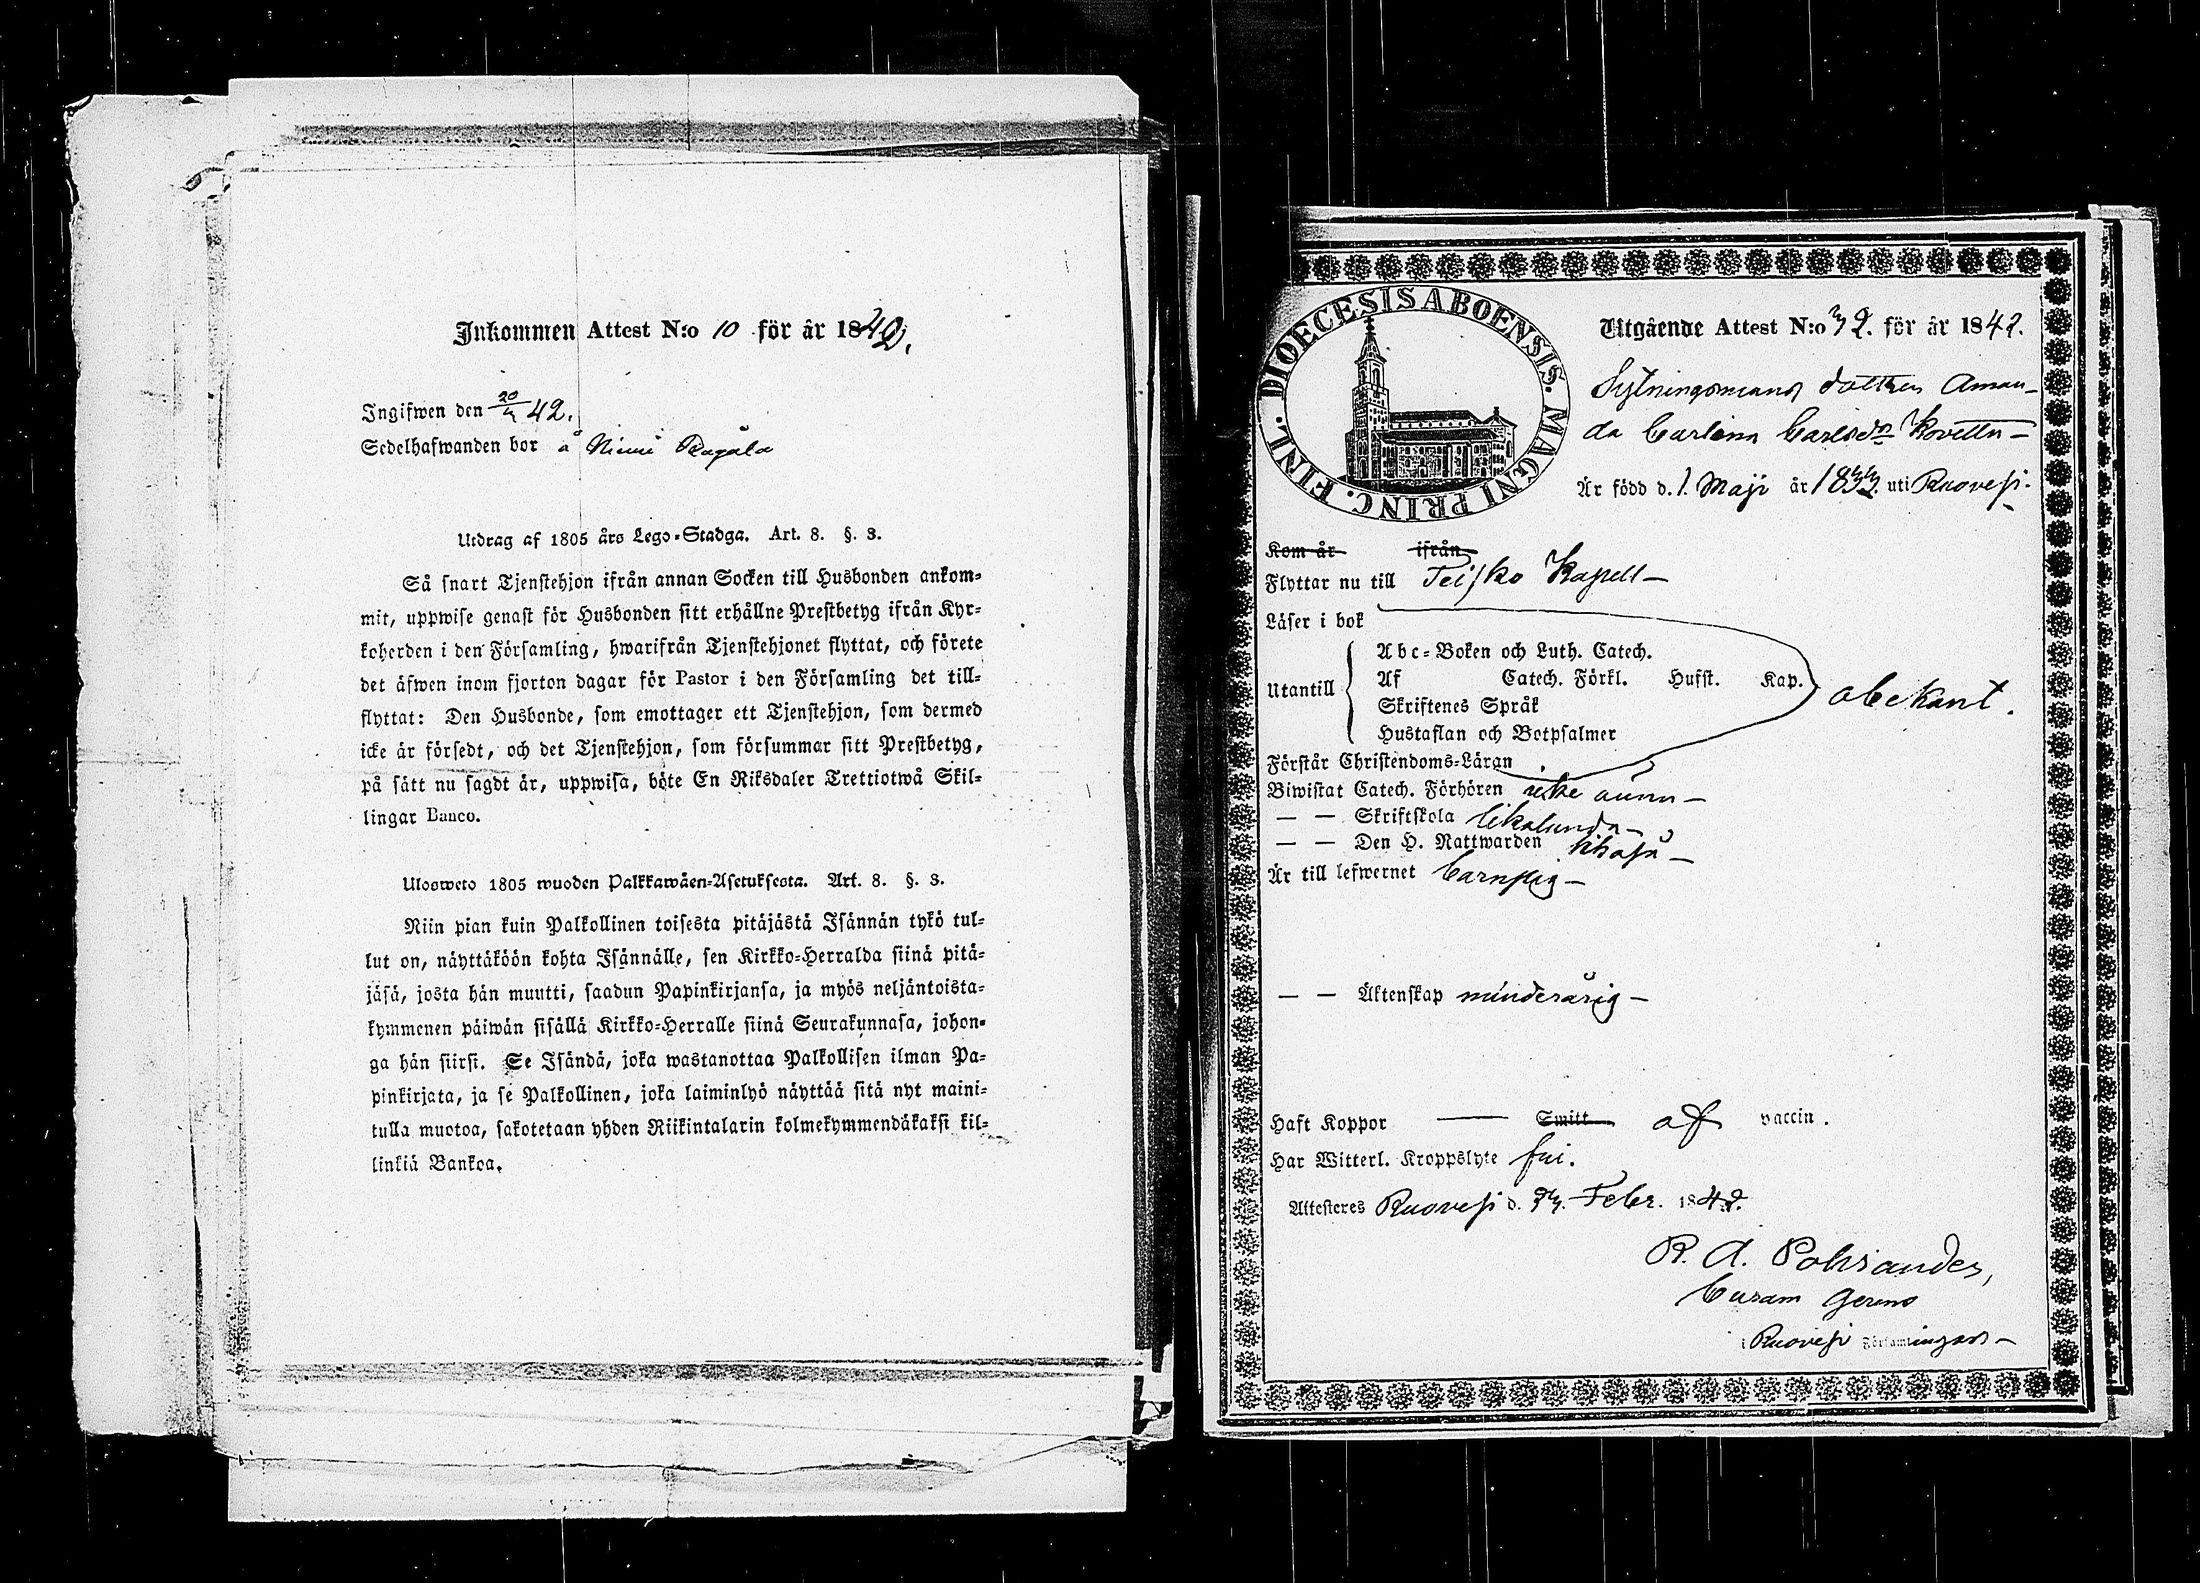 Inkommen Attest N:o 10 för år 1842.
Ingifwen den 20/4 42.
Sedelhafwanden bor å Niemi Ragala
Utdrag af 1805 års Lego-Stadga. Art. 8. §. 3.
Så snart Tjenstehjon ifrån annan Socken till Husbonden ankom-
mit, uppwise genast för Husbonden sitt erhållne Prestbetyg ifrån Kyr-
koherden i den Församling, hwarifrån Tjenstehjonet flyttat, och förete
det äfwen inom fjorton dagar för Pastor i den Församling det till-
flyttat: Den Husbonde, som emottager ett Tjenstehjon, som dermed
icke är försedt, och det Tjenstehjon, som försummar sitt Prestbetyg,
på sätt nu sagdt är, uppwisa, böte En Riksdaler Trettiotwå Skil-
lingar Banco.
Ulosweto 1805 wuoden Palkkawäen-Asetuksesta. Art. 8. §. 3.
Niin pian kuin Palkollinen toisesta pitäjästä Isännän tykö tul-
lut on, näyttäköön kohta Isännälle, sen Kirkko-Herralda siinä pitä-
jäsä, josta hän muutti, saadun Papinkirjansa, ja myös neljäntoista-
kymmenen päiwän sisällä Kirkko-Herralle siinä Seurakunnasa, johon-
ga hän siirsi. Se Isändä, joka wastanottaa Palkollisen ilman Pa-
pinkirjata, ja se Palkollinen, joka laiminlyö näyttää sitä nyt maini-
tulla muotoa, sakotetaan yhden Riikintalarin kolmekymmendäkaksi kil-
linkiä Bankoa.
FINL. DIOECESIS ABOENSIS. MAGNI PRINC.
Utgående Attest N:o 32. för år 1842.
Sytningsmans dottren Aman-
da Carlina Carlsdr
Är född d. 1. Maji år 1833. uti Ruovesi.
Kom år ifrån
Flyttar nu till Teisko Kapell
Läser i bok
Utantill
Abc-Boken och Luth. Catech.
Af Catech. Förkl. Husst. Kap.
Skriftenes Språk
Hustaflan och Botpsalmer
obekant.
Förstår Christendoms-Läran
Biwistat Catech. Förhören icke ännu
— — Skriftskola likalunda
— — Den H. Nattwarden likaså
Är till lefwernet barnslig
— — Äktenskap minderårig
Haft Koppor — Smitt af vaccin.
Har Witterl. Kroppslyte fri.
Attesteres Ruovesi d. Febr. 1842.
R. A. Pohsander,
Curam Gerens
i Ruovesi Församlingars